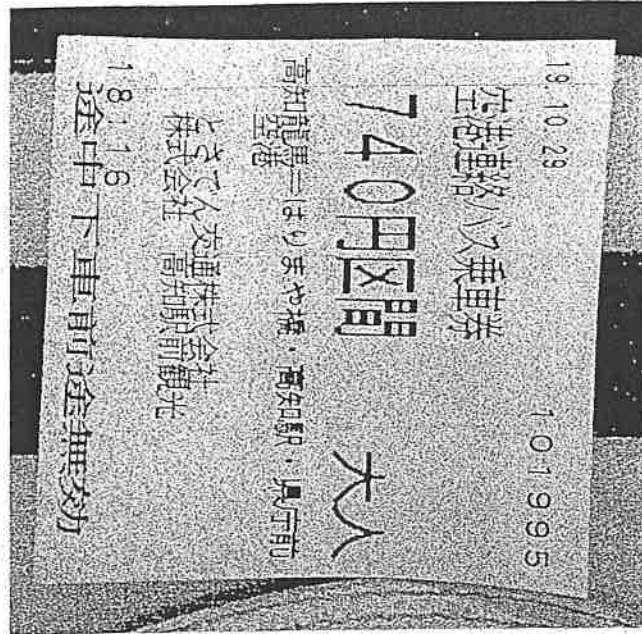 19.10.29
101995
空港連絡バス乗車券
740円区間
大人
高知龍馬空港=はりまや橋・高知駅・県庁前
とさでん交通株式会社
株式会社 高知駅前観光
18:16
途中下車前途無効